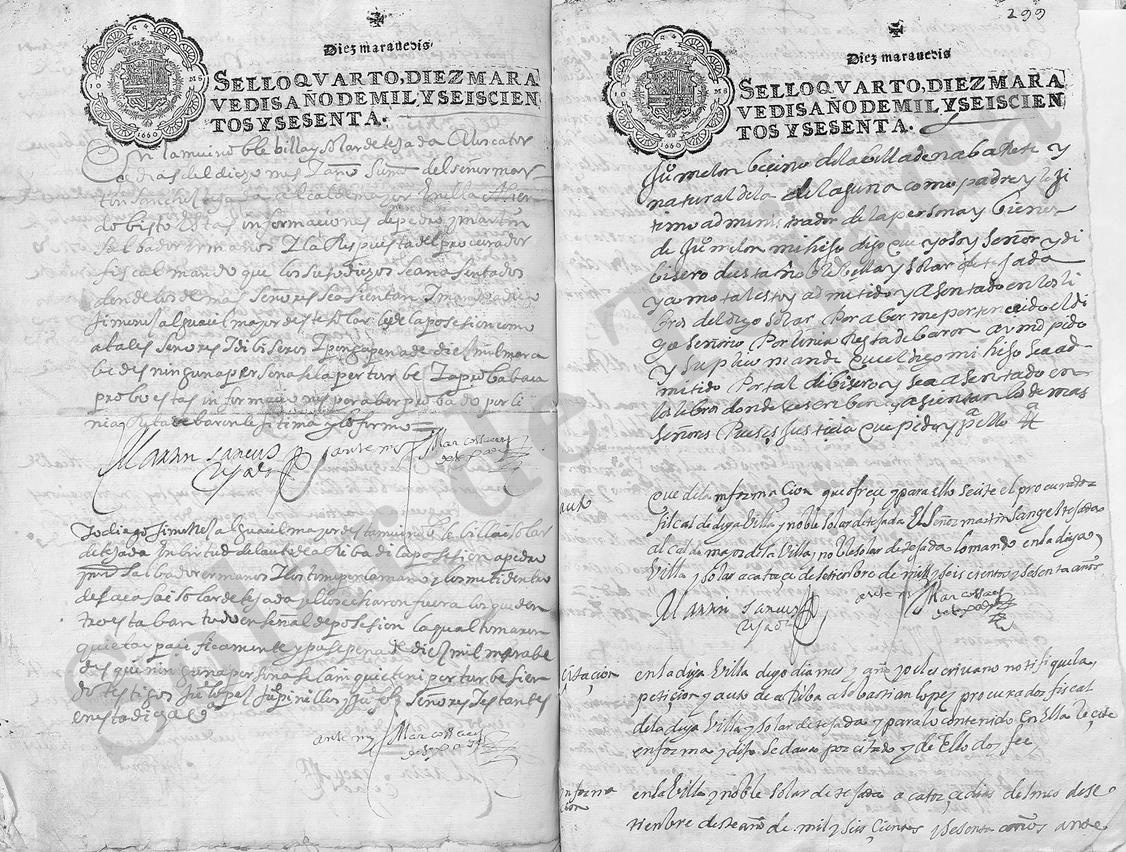 Diez marauedis
SELLO QVARTO, DIEZ MARA
VEDIS AÑO DE MIL Y SEISCIEN
TOS Y SESENTA.
En la mui noble billa y solar de tejada A
del dicho mes y año sumd. del señor mar
tin sanchez tejada alcalde mayor en ella
do bisto estas informaciones de pedro y martin
salbador ermanos I la Respuesta del procurador
fiscal mando que los susodichos sean asentados
donde los demas señores se asientan I mando a
Jimenez alguacil mayor deste solar les de la posesion como
a tales señores I dibiseros I pongo pena de diez mill mara
bedis ninguna persona se la perturbe I aprobaba
probo estas informaciones por aber probado por li
nia Reta de baron lejitima y lo firmo
Martin sancus ante my Marcos Saenz
tejada
Yo diego Jimenez alguacil mayor desta mui noble billa i solar
de tejada en birtud del auto de aRiba di la posesion a pedro
y salbador ermanos I los tome por la mano y los meti dentro
de la casa i solar de tejada y ellos echaron fuera los que den
tro estaban todo en señal de posesion la qual tomaron
quieta y pacificamente y puse pena de diez mil marabe
dis que ninguna persona se la inquiete ni perturbe sien
do testigos Juo lopez Juo pinillos y Señores I estantes
en esta dicha
ante my Marcos Saenz
299
Diez marauedis
SELLO QVARTO, DIEZ MARA
VEDIS AÑO DE MIL Y SEISCIEN
TOS Y SESENTA.
Juo melon becino de la billa de nabaRete y
natural de la de laguna como padre y leji
timo administrador de la persona y bienes
de Juo melon mi hijo digo que yo soy Señor y di
bisero desta noble billa y Solar de tejada
y como tal estoy admitido y asentado en los li
bros del dicho Solar Por aberme pertenecido el di
cho Señorio Por linia Reta de baron a vmd pido
y suplico mande que el dicho mi hijo sea ad
mitido Por tal dibisero y sea asentado en
los libros donde se escriben y asientan los demas
Señores Pues es Justicia que pido y Pa ello
auto
que de la informacion que ofrece y para Ello se cite el procurador
fiscal de dicha Villa y noble solar de tejada El Señor martin Sangez tejada
alcalde mayor de la Villa y noble solar de tejada lo mando en la dicha
Villa y solar a catorce de setienbre de mill y seiscientos y sesenta años
Martin sancus ante my Marcos Saenz
tejada
citacion
en la dicha Villa dicho dia mes y año yo el escriuano notifique la
peticion y auto de aRiba a Sebastian lopez procurador fiscal
de la dicha Villa y solar de tejada y para lo contenido en Ella le cite
en forma y dijo se daua por citado y de Ello doy fee
informa
cion
en la Villa y noble solar de tejada a catorce dias del mes de se
tienbre deste año de mil y seis cientos y sesenta años ante
Solar de Tejada